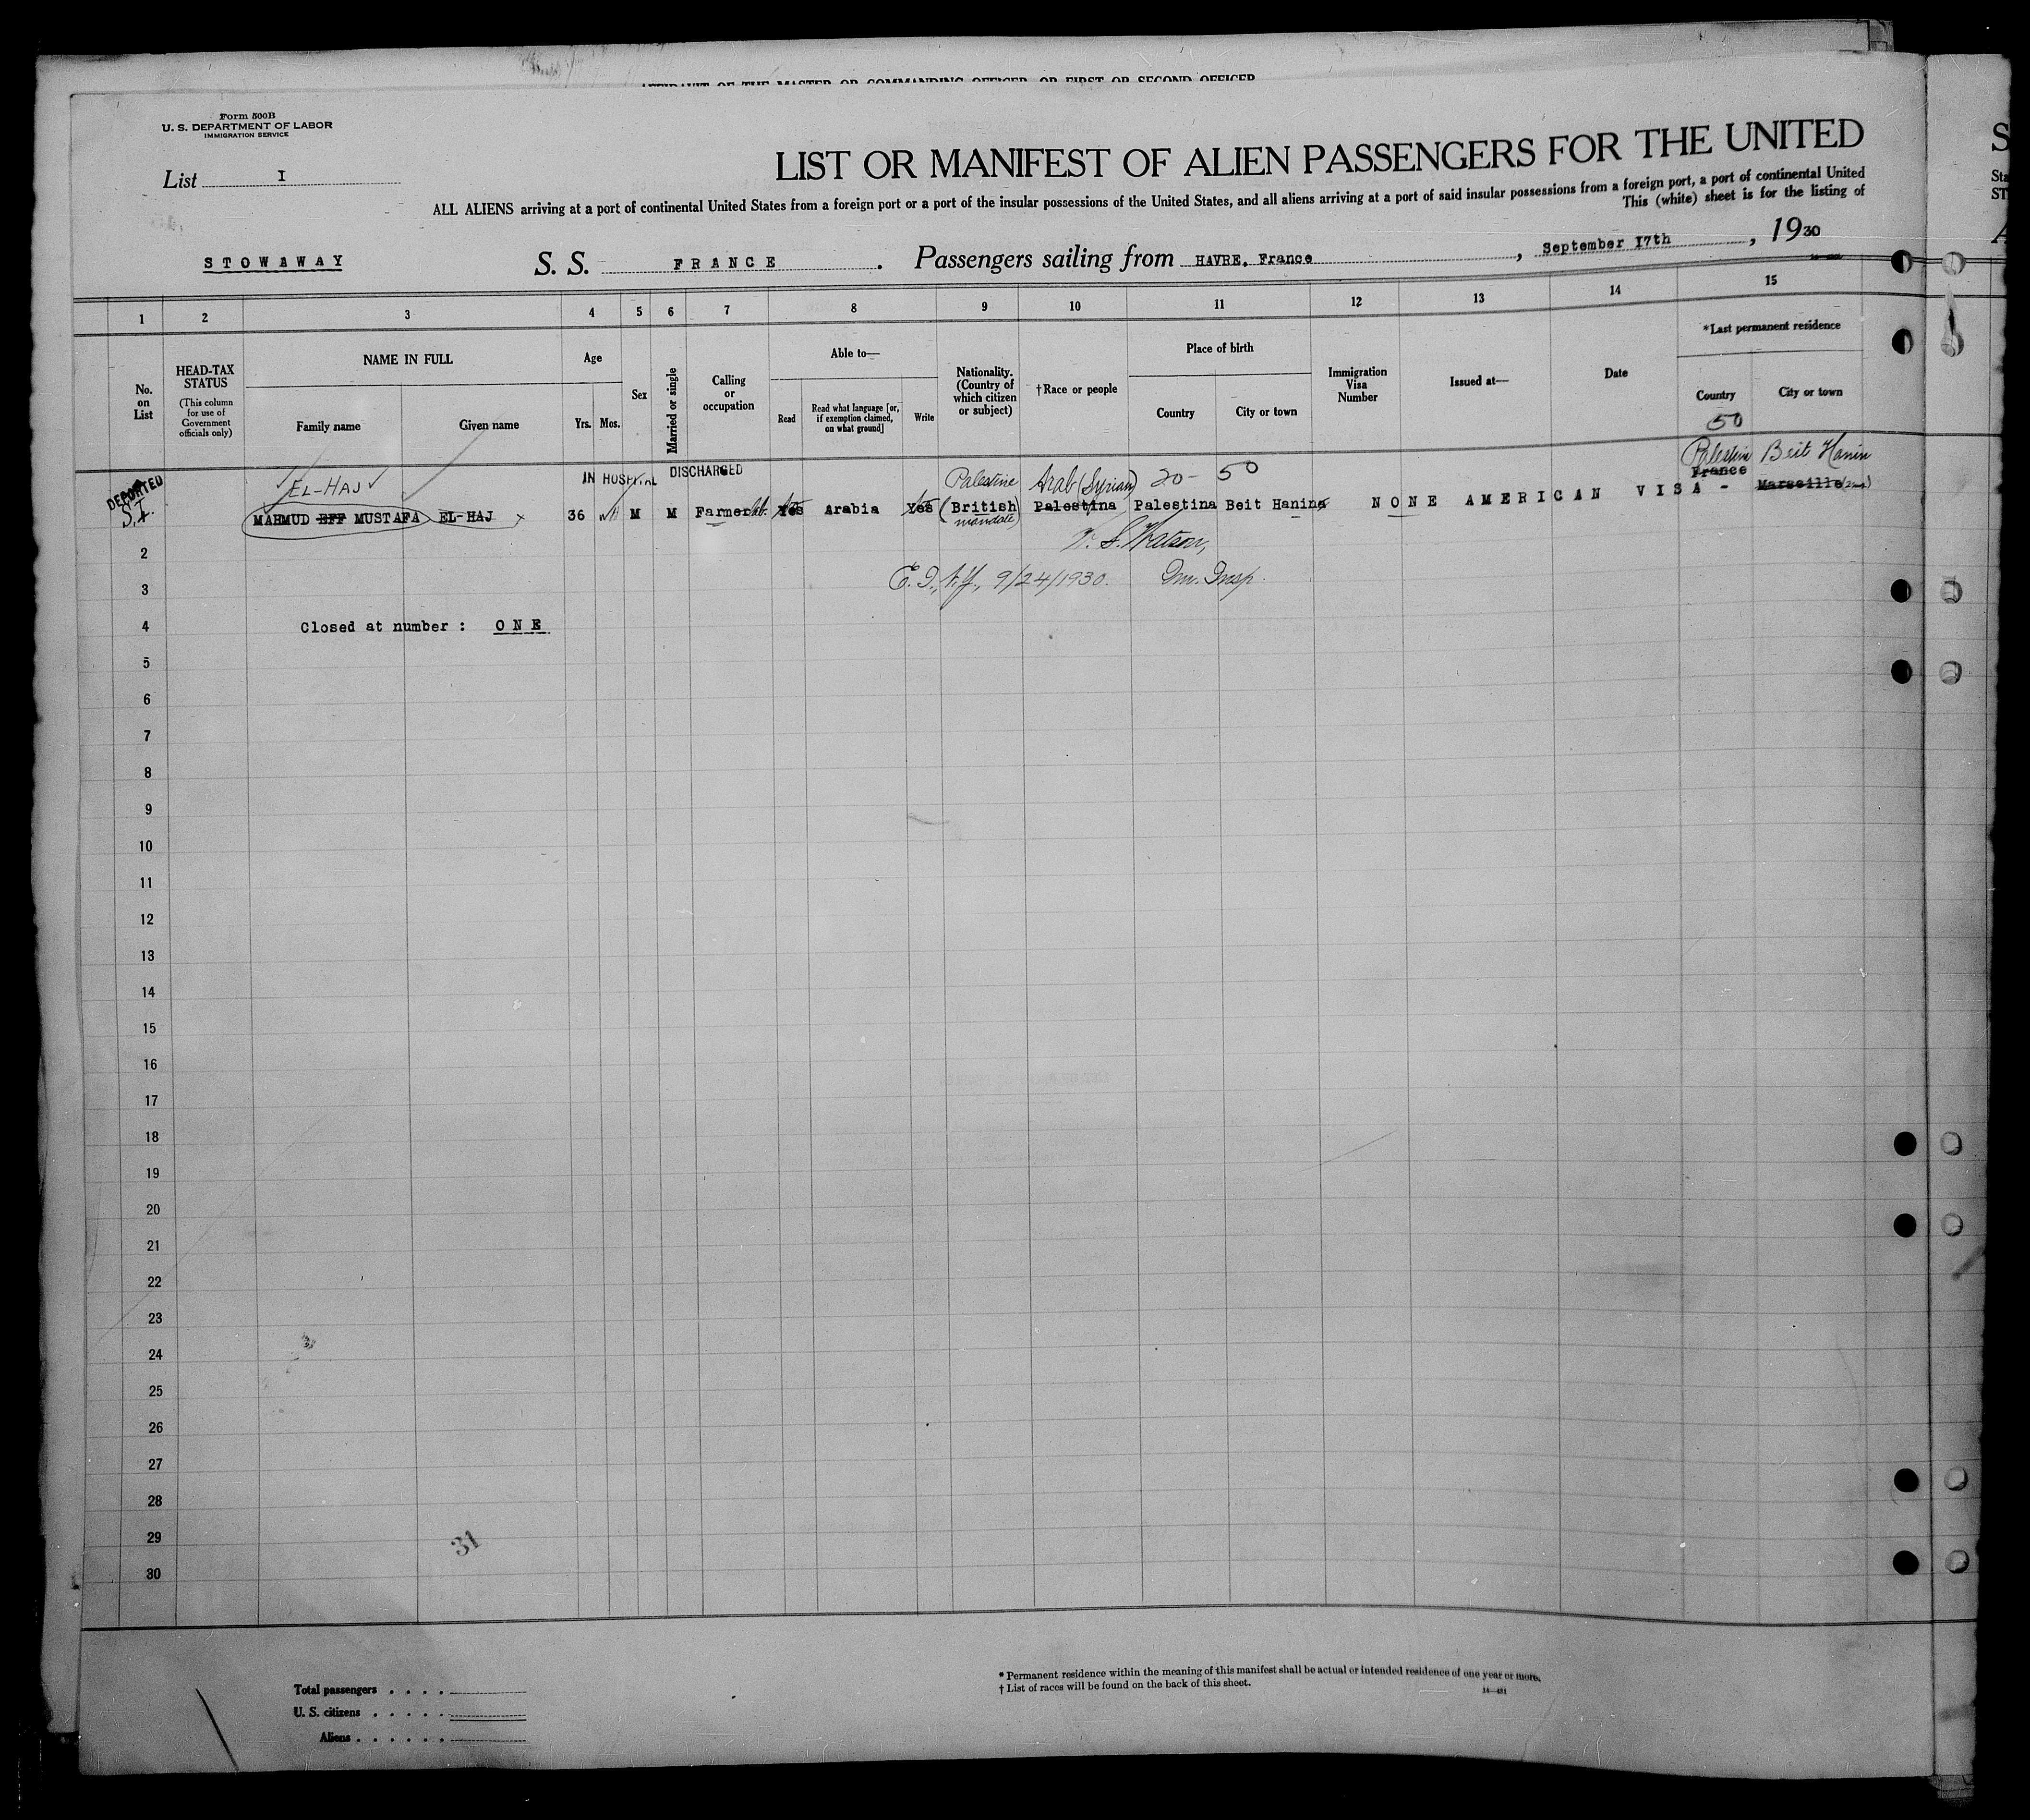 AFFIDAVIT OF THE MASTER OR COMMANDING OFFICER, OR FIRST OR SECOND OFFICER
Form 500B
U. S. DEPARTMENT OF LABOR
IMMIGRATION SERVICE
List I
LIST OR MANIFEST OF ALIEN PASSENGERS FOR THE UNITED
ALL ALIENS arriving at a port of continental United States from a foreign port or a port of the insular possessions of the United States, and all aliens arriving at a port of said insular possessions from a foreign port, a port of continental United
This (white) sheet is for the listing of
STOWAWAY S. S. FRANCE. Passengers sailing from HAVRE, France, September 17th, 1930
1 2 3 4 5 6 7 8 9 10 11 12 13 14 15
No. on List
HEAD-TAX STATUS
(This column for use of Government officials only)
NAME IN FULL
Family name
Given name
Age
Yrs. Mos.
Sex
Married or single
Calling or occupation
Able to—
Read
Read what language [or, if exemption claimed, on what ground]
Write
Nationality. (Country of which citizen or subject)
†Race or people
Place of birth
Country
City or town
Immigration Visa Number
Issued at—
Date
*Last permanent residence
Country
City or town
50
DEPORTED
S.I.
EL-HAJ
IN HOSPITAL DISCHARGED
Palestine Arab (Syrian) 20- 50
Palestin Beit Hanin
France Marseille
MAHMUD BFF MUSTAFA EL-HAJ 36 M M Farmer Yes Arabia Yes (British Palestina Palestina Beit Hanina NONE AMERICAN VISA -
mandate)
W. S. Watson,
2
E. I., N.Y., 9/24/1930. Imm. Insp.
3
4 Closed at number : ONE
5
6
7
8
9
10
11
12
13
14
15
16
17
18
19
20
21
22
23
24
25
26
27
28
29
31
30
* Permanent residence within the meaning of this manifest shall be actual or intended residence of one year or more.
† List of races will be found on the back of this sheet.
Total passengers
U. S. citizens
Aliens